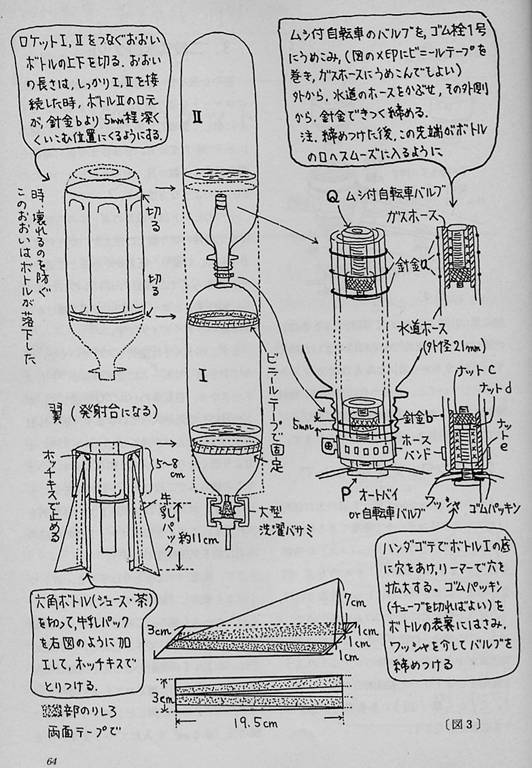 ロケットⅠ,Ⅱをつなぐおおい
ボトルの上下を切る。おおい
の長さは,しっかりⅠ,Ⅱを接
続した時,ボトルⅡの口元
が,針金bより5mm程深く
くいこむ位置にくるようにする.
ムシ付自転車のバルブを,ゴム栓1号
にうめこみ,(図の×印にビニールテープを
巻き,ガスホースにうめこんでもよい)
外から,水道のホースをかぶせ,その外側
から,針金できつく締める.
注.締めつけた後,この先端がボトル
の口へスムーズに入るように
このおおいはボトルが落下した
時,壊れるのを防ぐ
切る
切る
Ⅱ
Ⅰ
ビニールテープで固定
Q ムシ付自転車バルブ
ガスホース
針金a
水道ホース
(外径21mm)
ナットC
ナットd
ナットe
針金b
5mm
ホース
バンド
P オートバイ
or自転車バルブ
ワッシャ
ゴムパッキン
翼 (発射台になる)
ホッチキスで止める
5~8
cm
牛乳パック
約11cm
大型
洗濯バサミ
六角ボトル(ジュース・茶)
を切って,牛乳パック
を右図のように加
工して,ホッチキスで
とりつける.
部のりしろ
両面テープで
3cm
7cm
1cm
1cm
1cm
3cm
19.5cm
ハンダゴテでボトルⅠの底
に穴をあけ,リーマーで穴を
拡大する。ゴムパッキン
(チューブを切ればよい)を
ボトルの表裏にはさみ,
ワッシャを介してバルブを
締めつける
〔図3〕
64